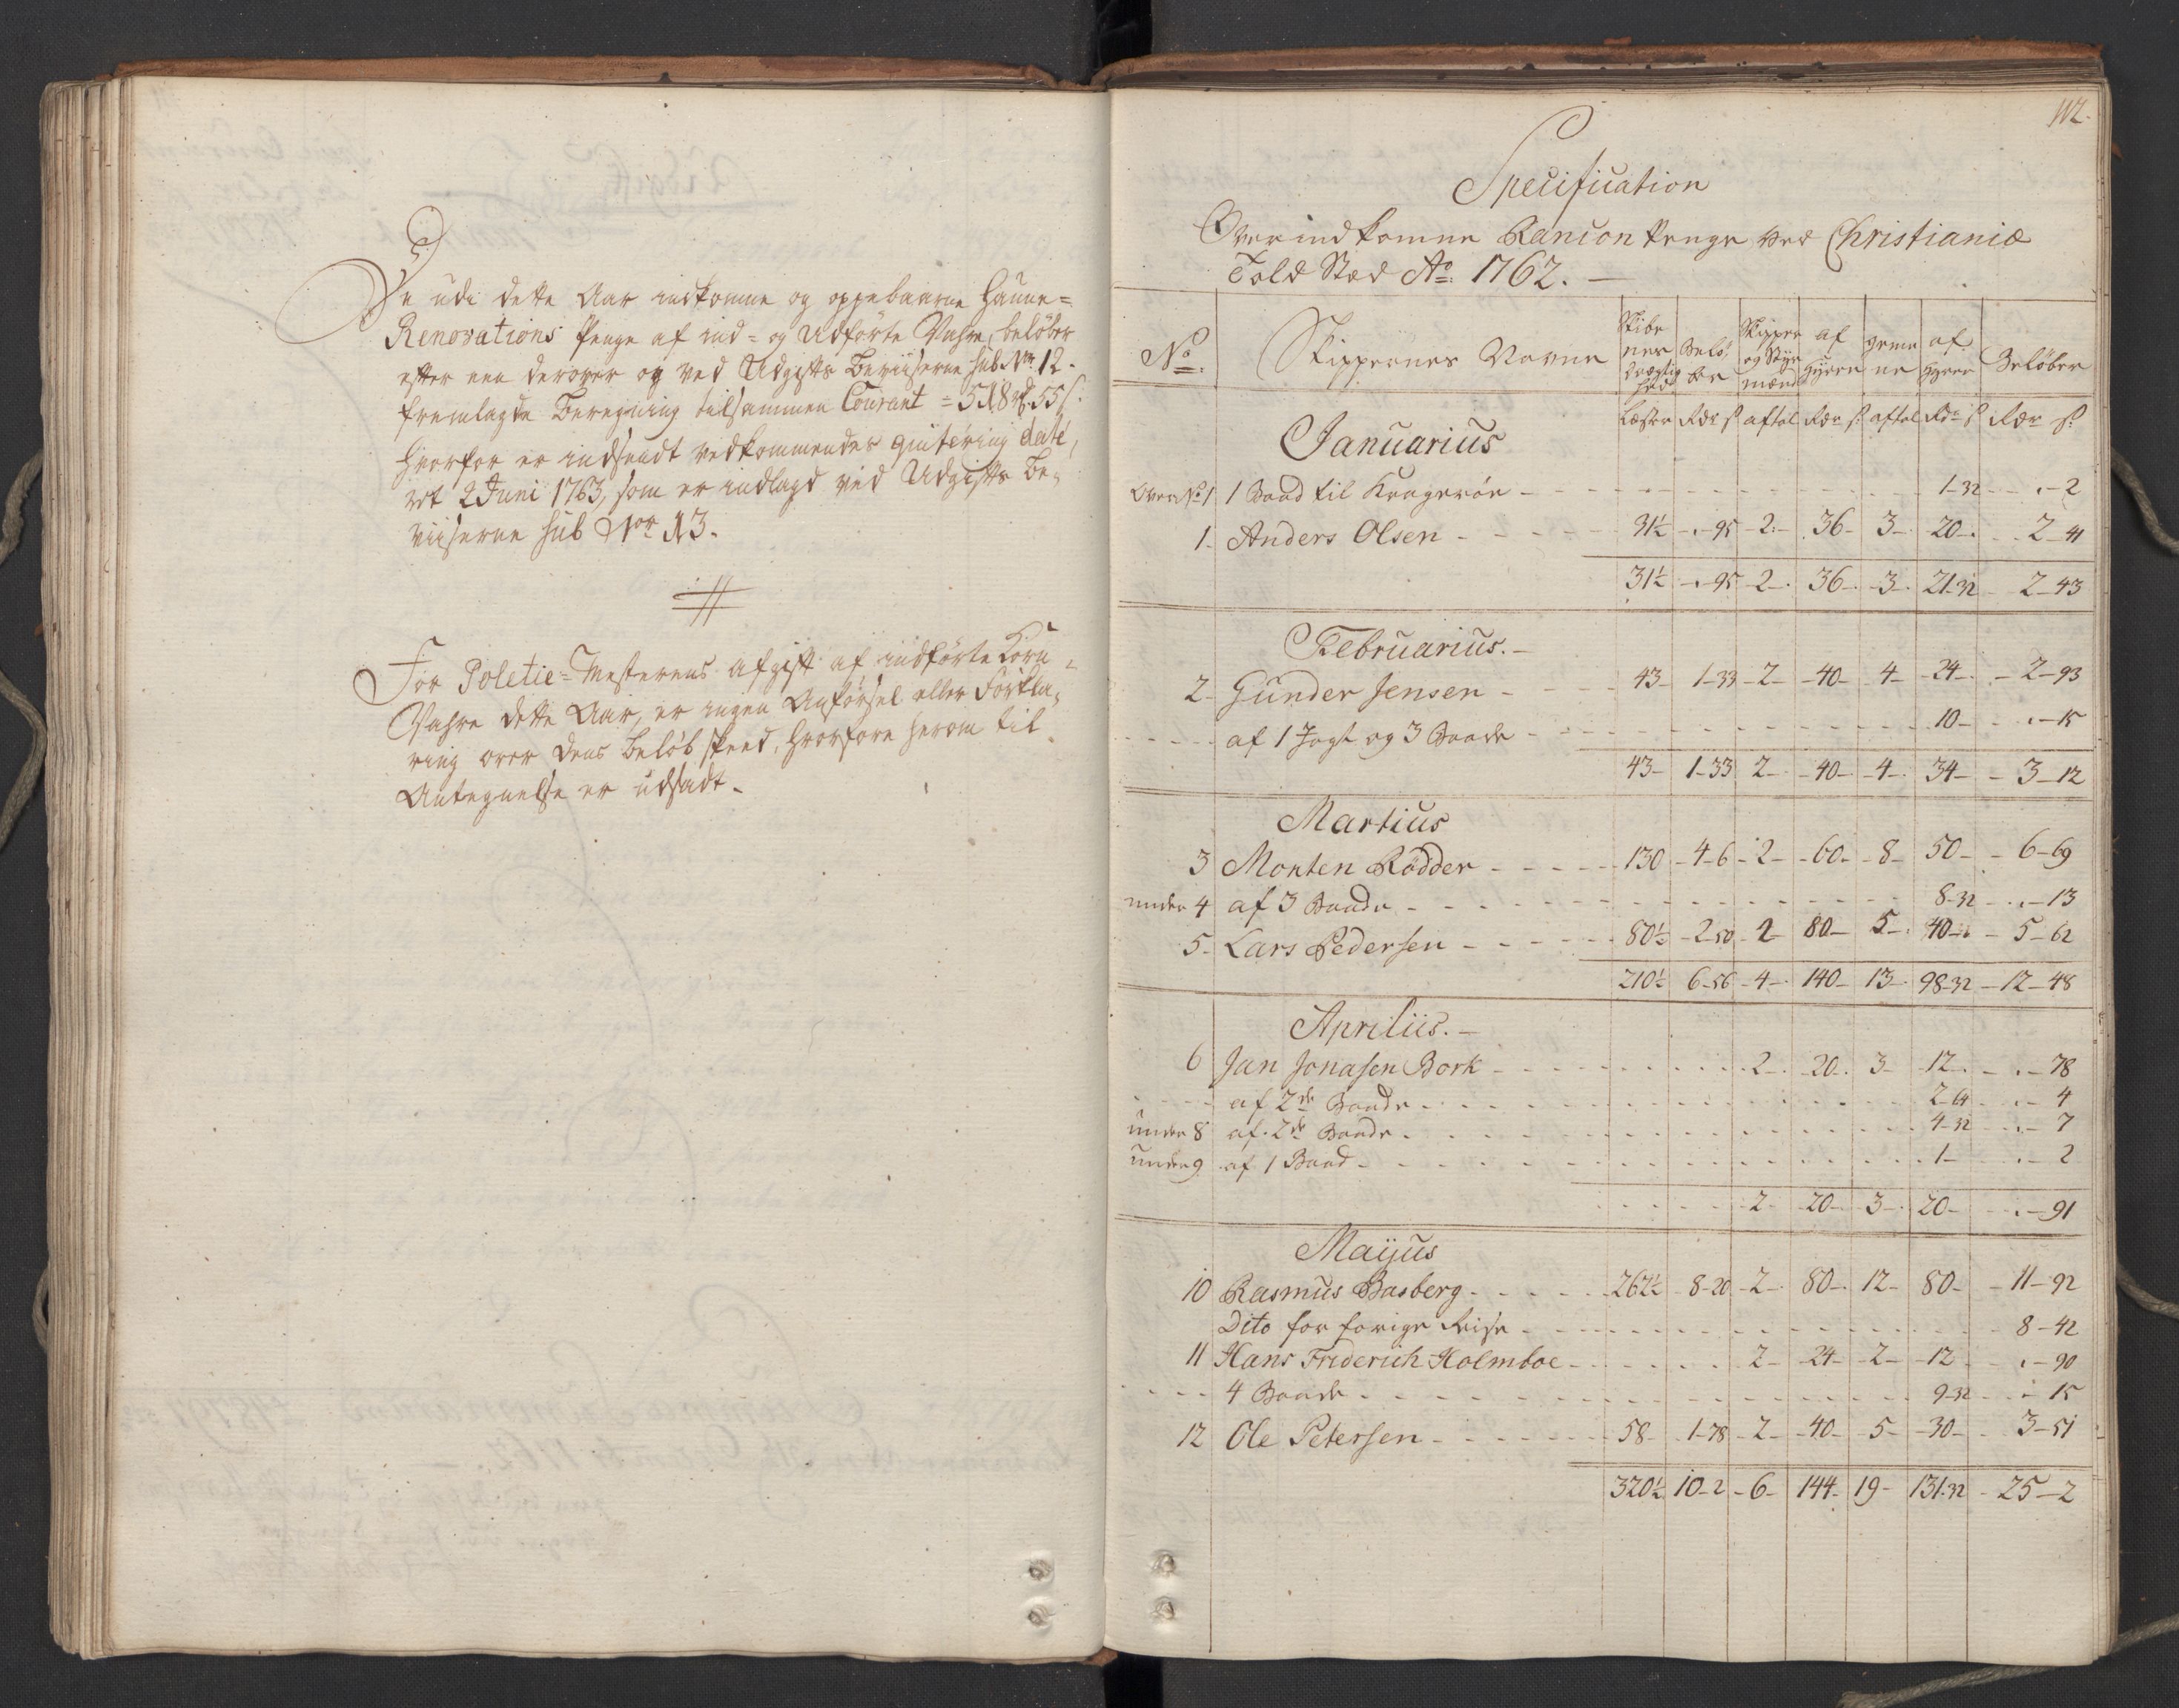 De udi dette Aar indkomne og oppebaarne Haune=
Renovations Penge af ind= og Udförte Vahre, beløber
efter een derover og ved Udgifts Beviiserne sub Nr. 12.
fremlagde Beregning tilsammen Courant = 518 rd. 55 s.
hvorfor er indsendt vedkommendes quitering date,
ret 2 Juni 1763, som er indlagd ved Udgifts Be,
viiserne sub Nor 13.
For Poletie=Mesterens afgift af indförte Korn,
Vahre dette Aar, er ingen Anförsel eller Forkla,
ring over dens beløb skeed, hvorfore herom til
Antegnelse er udsadt.
112.
Specification
Over indkomne Rancon Penge ved Christianiæ
Told Sted Ao. 1762.
No. Skippernes Navne Skibe nes drægtig hed Belö, ber Skipper og Styr mænd af hyren geme ne af hyren Beløber
Læster Rdr s aftal Rdr s aftal Rdr s Rdr s
Januarius
Over No 1 1 Baad til Kragerøe 1-32 . - 2
1. Anders Olsen 31½ . - 95 2. 36 3 20 2-41
31½ . - 95 2 36 3 21-32 2-43
Februarius.
2. Gunder Jensen 43 1-33 2 40 4 24 2-93
af 1 Jagt og 3 Baade 10 . - 15
43 1-33 2 40 4 34 3-12
Martius
3 Monten Rödder 130 4-6 2 60 8 50 6-69
under 4 af 3 Baade 8-32 . - 13
5. Lars Pedersen 80½ 2-50 2 80 5 40 5-62
210½ 6-56 4 140 13 98-32 12-48
Aprilius.
6 Jan Jonasen Bork 2 20 3 12 . - 78
af 2de Baade 2-64 . - 4
under 8 af 2de Baade 4-32 . - 7
under 9 af 1 Baad 1 . - 2
2 20 3 20 . - 91
Maijus
10 Rasmus Basberg 262½ 8-20 2 80 12 80 11-92
Dito for forige Reise 8-42
11 Hans Friderich Holmboe 2 24 2 12 . - 90
4 Baade 9-32 . - 15
12 Ole Petersen 58 1-78 2 40 5 30 3-51
320½ 10-2 6 144 19 131-32 25-2